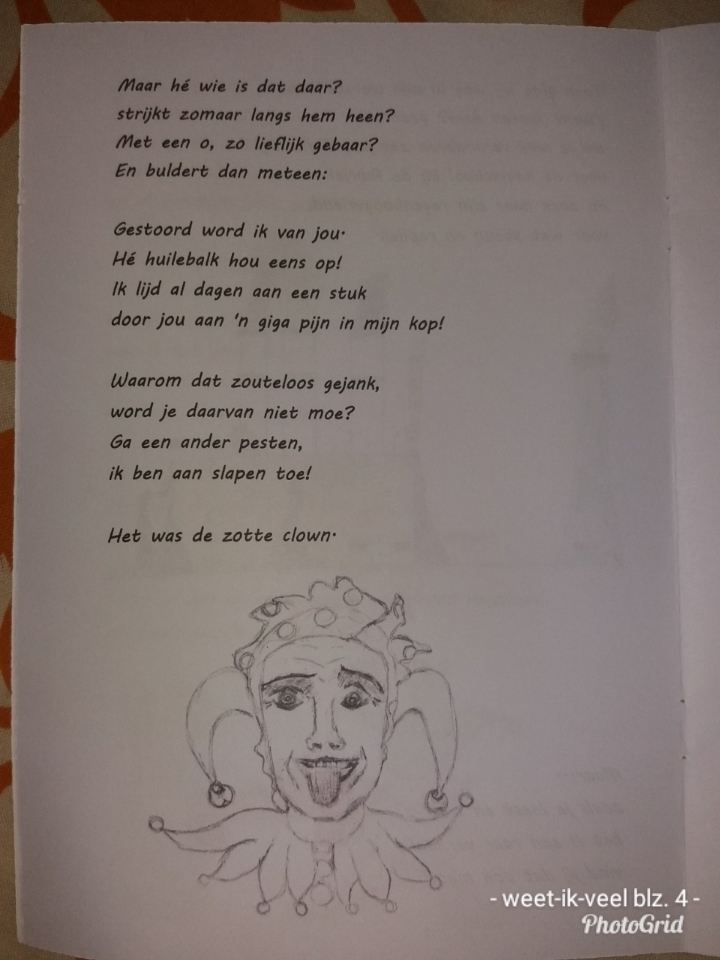 Maar hé wie is dat daar?
strijkt zomaar langs hem heen?
Met een o, zo lieflijk gebaar?
En buldert dan meteen:
Gestoord word ik van jou.
Hé huilebalk hou eens op!
Ik lijd al dagen aan een stuk
door jou aan 'n giga pijn in mijn kop!
Waarom dat zouteloos gejank,
word je daarvan niet moe?
Ga een ander pesten,
ik ben aan slapen toe!
Het was de zotte clown.
- weet-ik-veel blz. 4 -
PhotoGrid